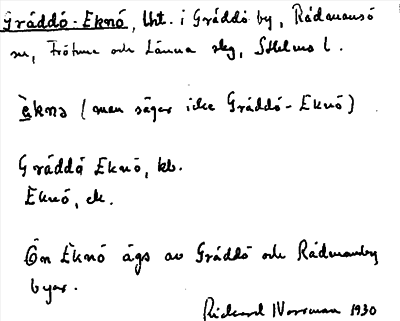 Gräddö-Eknö, Utt. i Gräddö by, Rådmansö
sn, Frötuna och Länna skg, Sthlms l.
èkna (man säger icke Gräddö-Eknö)
Gräddö Eknö, kb.
Eknö, ek.
Ön Eknö ägs av Gräddö och Rådmanby
byar.
Rickard Norrman 1930